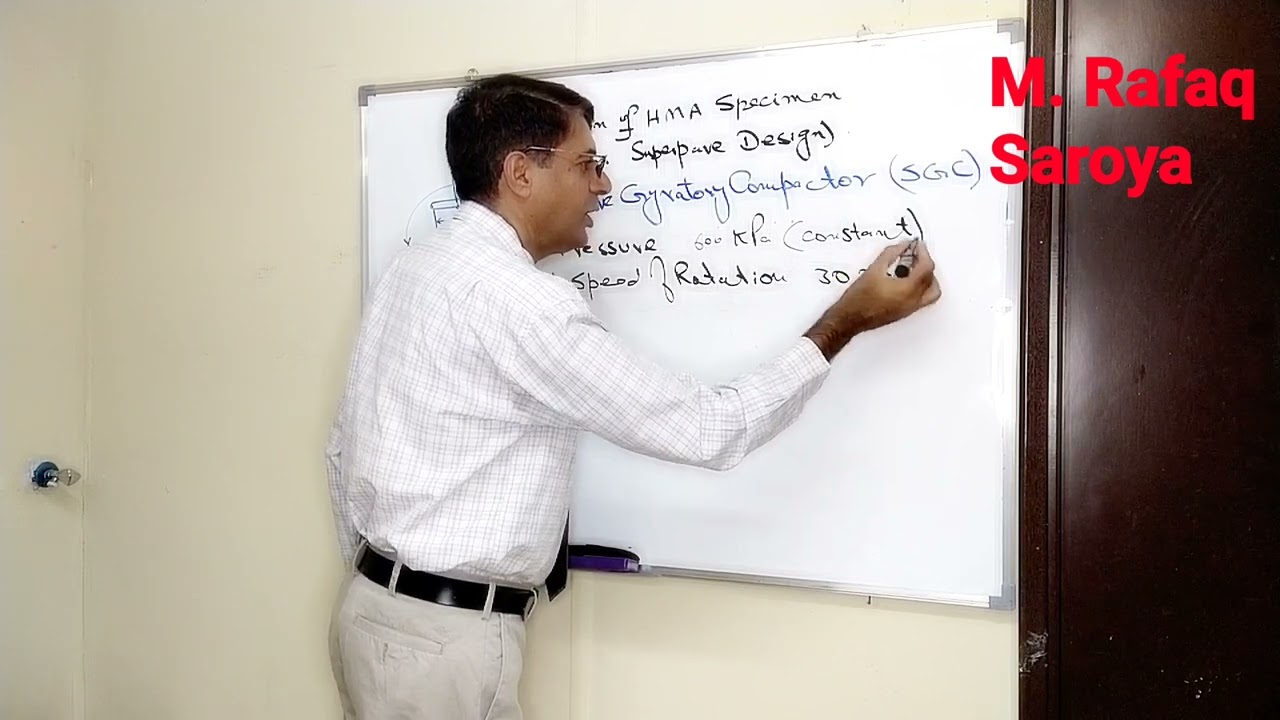 of HMA Specimen
Superpave Design)
Gyratory Compactor (SGC)
600 KPa (constant)
Speed of Rotation 30
M. Rafaq
Saroya